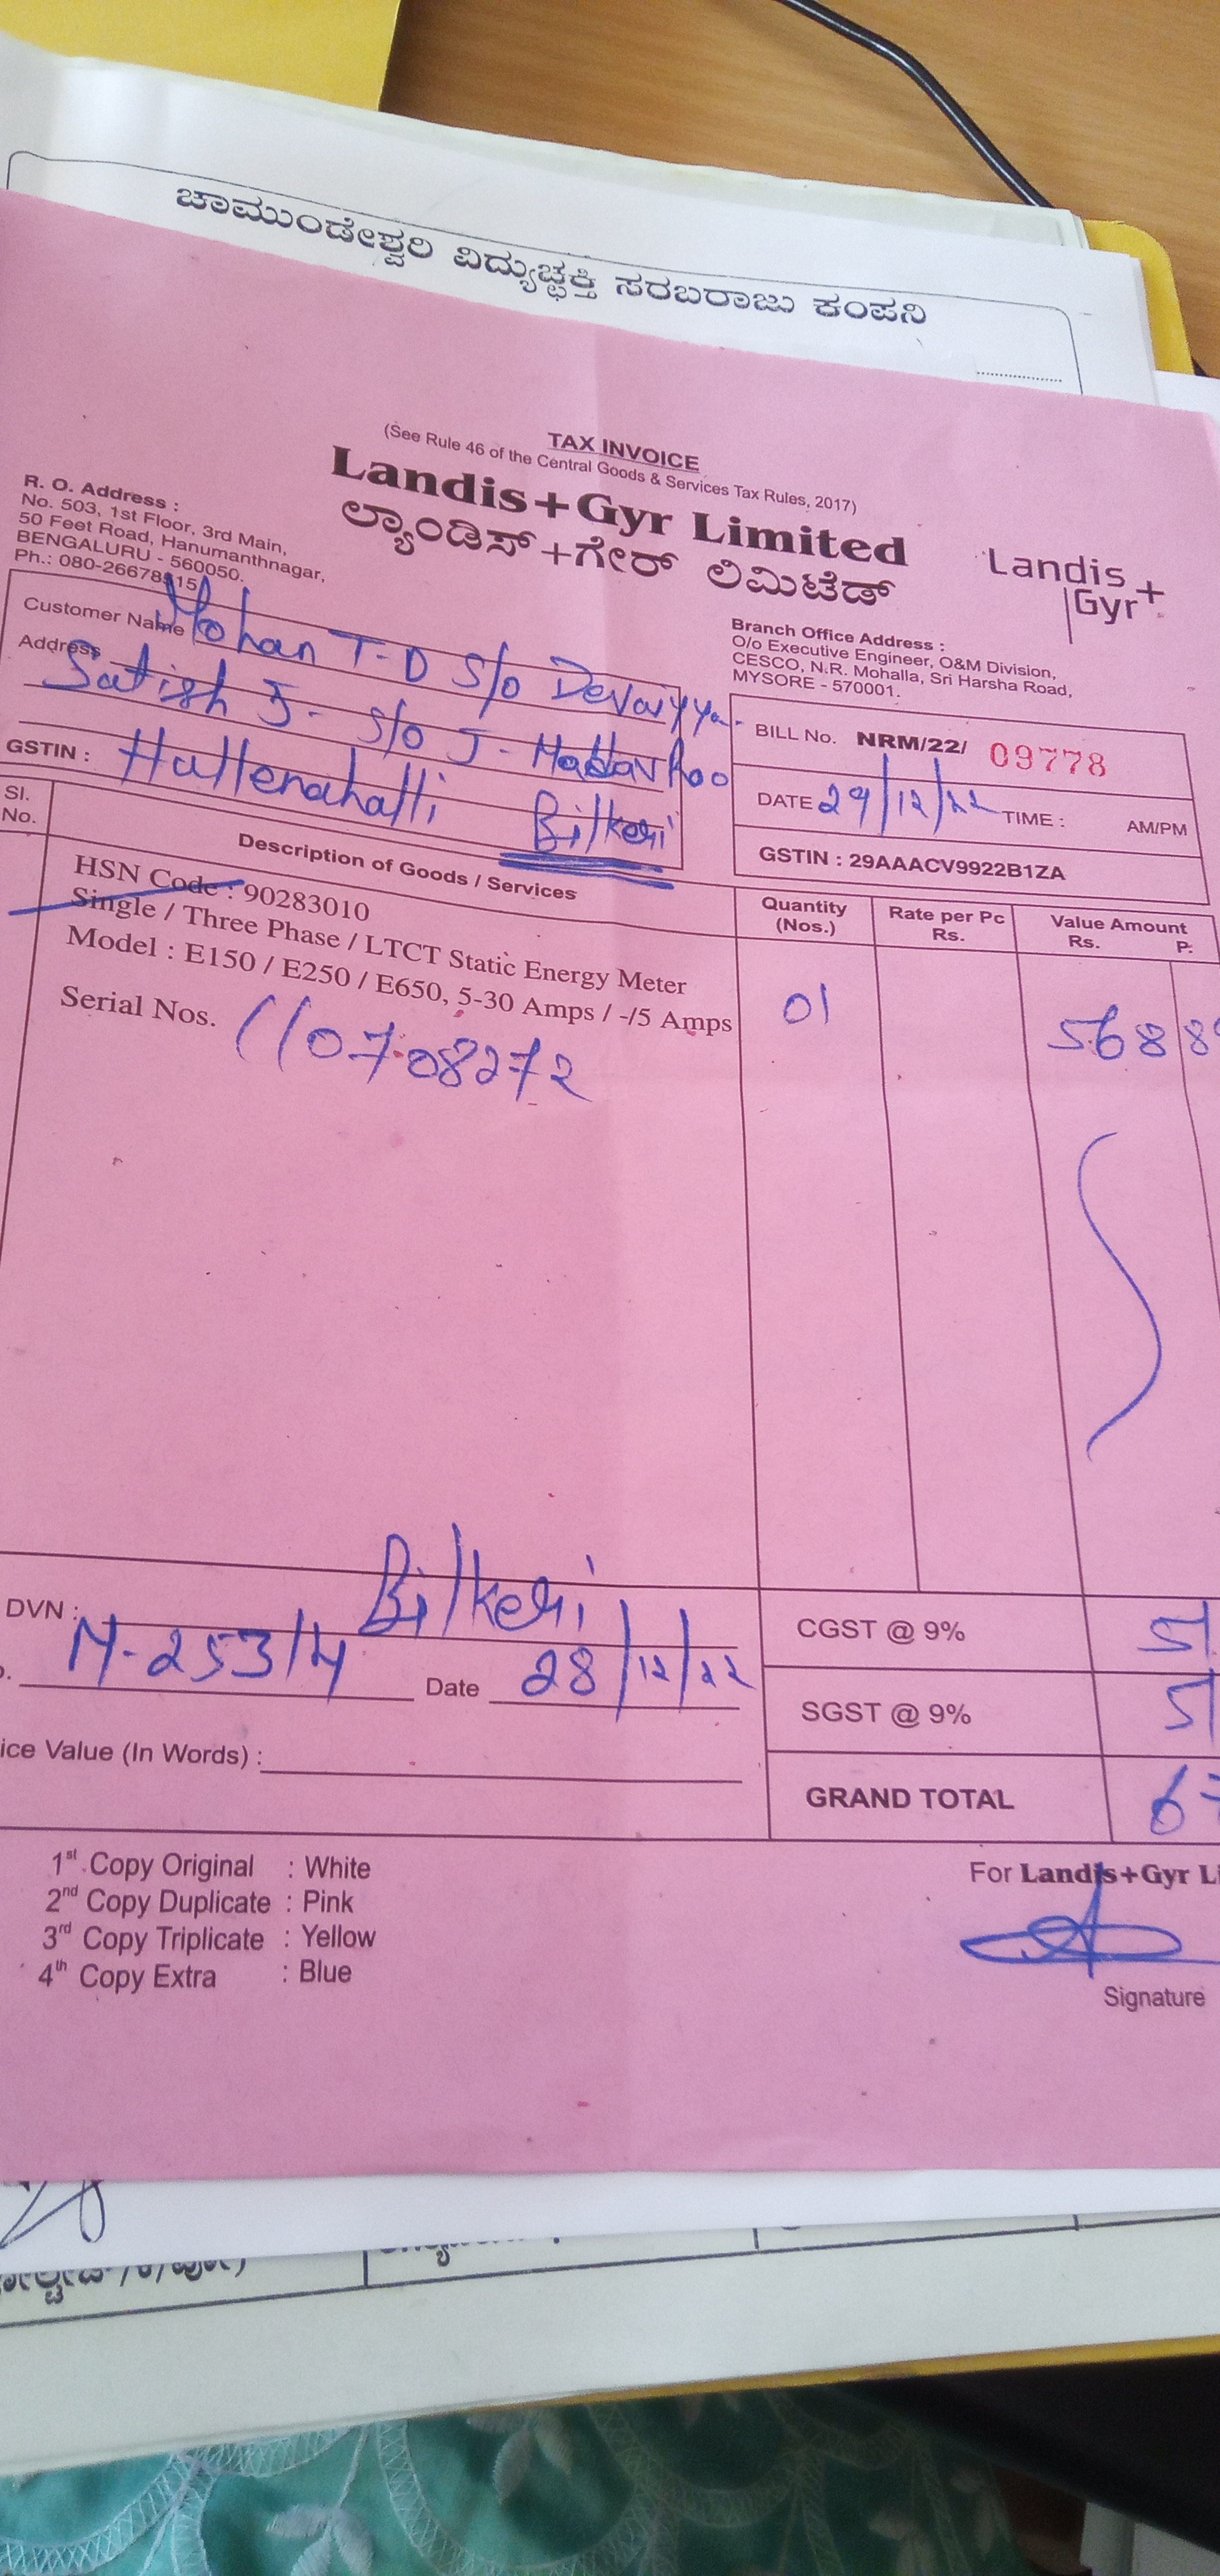 ಚಾಮುಂಡೇಶ್ವರಿ ವಿದ್ಯುಚ್ಛಕ್ತಿ ಸರಬರಾಜು ಕಂಪನಿ
TAX INVOICE
(See Rule 46 of the Central Goods & Services Tax Rules, 2017)
Landis+Gyr Limited
ಲ್ಯಾಂಡಿಸ್+ಗೇರ್ ಲಿಮಿಟೆಡ್
Landis+
Gyr
R. O. Address :
No. 503, 1st Floor, 3rd Main,
50 Feet Road, Hanumanthnagar,
BENGALURU - 560050.
Ph.: 080-26678915
Branch Office Address :
O/o Executive Engineer, O&M Division,
CESCO, N.R. Mohalla, Sri Harsha Road,
MYSORE - 570001.
Customer Name Mohan T-D S/o Devaiyya
Address Satish J- S/o J- Rao
GSTIN : Hullenahalli
Bilkeri
BILL No. NRM/22/ 09778
DATE 29/12/22 TIME : AM/PM
GSTIN : 29AAACV9922B1ZA
Sl. No. Description of Goods / Services Quantity (Nos.) Rate per Pc Rs. Value Amount Rs. P.
HSN Code : 90283010
Single / Three Phase / LTCT Static Energy Meter
Model : E150 / E250 / E650, 5-30 Amps / -/5 Amps 01 568
Serial Nos. 110708272
DVN : Bilkeri
M-253/4 Date 28/12/22
CGST @ 9% 51
SGST @ 9% 51
ice Value (In Words) :
GRAND TOTAL 67
1st Copy Original : White
2nd Copy Duplicate : Pink
3rd Copy Triplicate : Yellow
4th Copy Extra : Blue
For Landis+Gyr Li
Signature